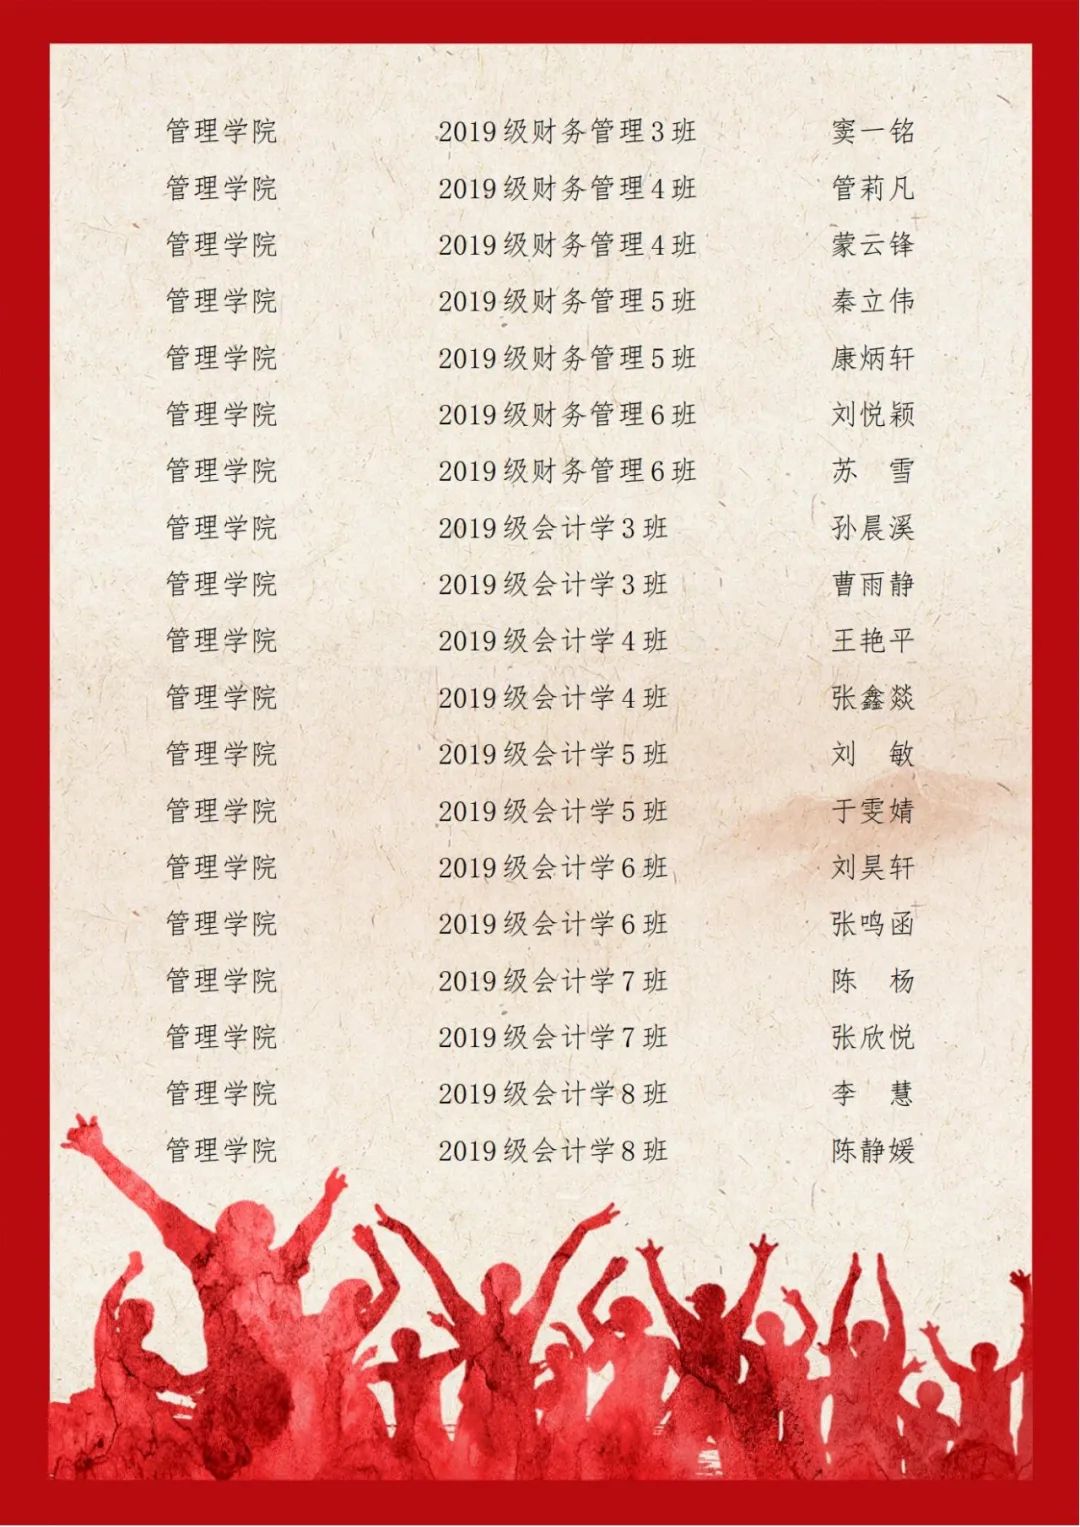 管理学院 2019级财务管理3班 窦一铭
管理学院 2019级财务管理4班 管莉凡
管理学院 2019级财务管理4班 蒙云锋
管理学院 2019级财务管理5班 秦立伟
管理学院 2019级财务管理5班 康炳轩
管理学院 2019级财务管理6班 刘悦颖
管理学院 2019级财务管理6班 苏　雪
管理学院 2019级会计学3班 孙晨溪
管理学院 2019级会计学3班 曹雨静
管理学院 2019级会计学4班 王艳平
管理学院 2019级会计学4班 张鑫燚
管理学院 2019级会计学5班 刘　敏
管理学院 2019级会计学5班 于雯婧
管理学院 2019级会计学6班 刘昊轩
管理学院 2019级会计学6班 张鸣函
管理学院 2019级会计学7班 陈　杨
管理学院 2019级会计学7班 张欣悦
管理学院 2019级会计学8班 李　慧
管理学院 2019级会计学8班 陈静媛